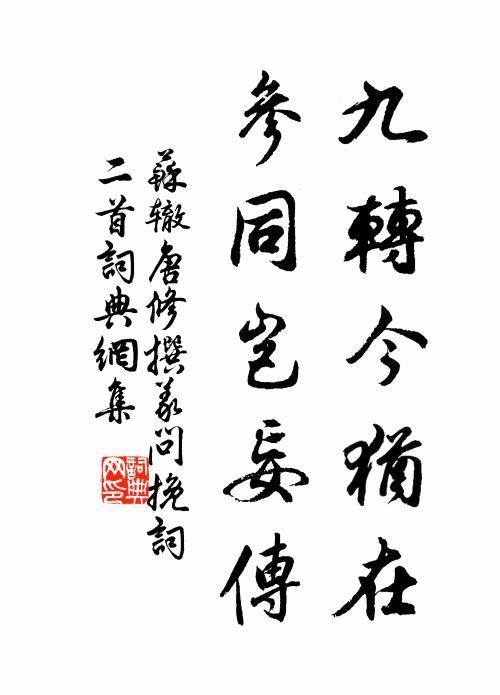 九轉今猶在
參同豈妄傳
蘇辙唐修撰義問挽詞
二首詞典網集
詞典
网印